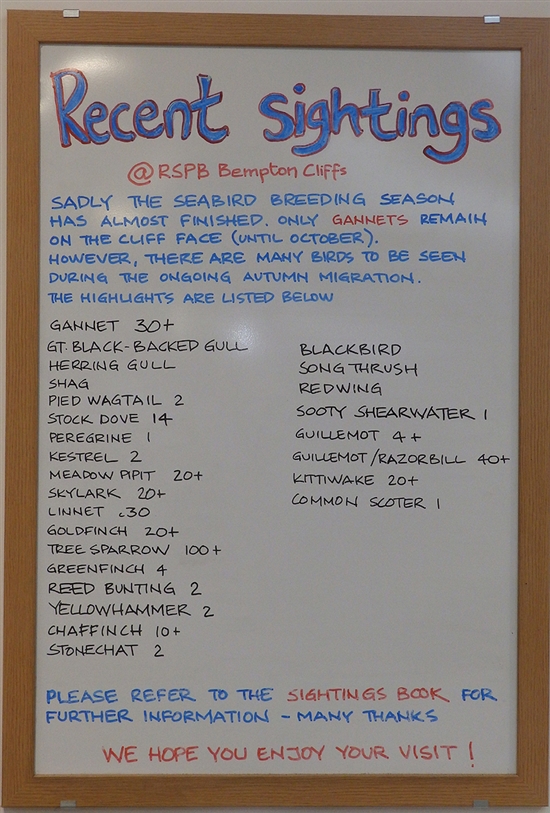 Recent sightings
@ RSPB Bempton Cliffs
SADLY THE SEABIRD BREEDING SEASON
HAS ALMOST FINISHED. ONLY GANNETS REMAIN
ON THE CLIFF FACE (UNTIL OCTOBER).
HOWEVER, THERE ARE MANY BIRDS TO BE SEEN
DURING THE ONGOING AUTUMN MIGRATION.
THE HIGHLIGHTS ARE LISTED BELOW
GANNET 30+
GT. BLACK-BACKED GULL
HERRING GULL
SHAG
PIED WAGTAIL 2
STOCK DOVE 14
PEREGRINE 1
KESTREL 2
MEADOW PIPIT 20+
SKYLARK 20+
LINNET c30
GOLDFINCH 20+
TREE SPARROW 100+
GREENFINCH 4
REED BUNTING 2
YELLOWHAMMER 2
CHAFFINCH 10+
STONECHAT 2
BLACKBIRD
SONG THRUSH
REDWING
SOOTY SHEARWATER 1
GUILLEMOT 4+
GUILLEMOT/RAZORBILL 40+
KITTIWAKE 20+
COMMON SCOTER 1
PLEASE REFER TO THE SIGHTINGS BOOK FOR
FURTHER INFORMATION - MANY THANKS
WE HOPE YOU ENJOY YOUR VISIT!